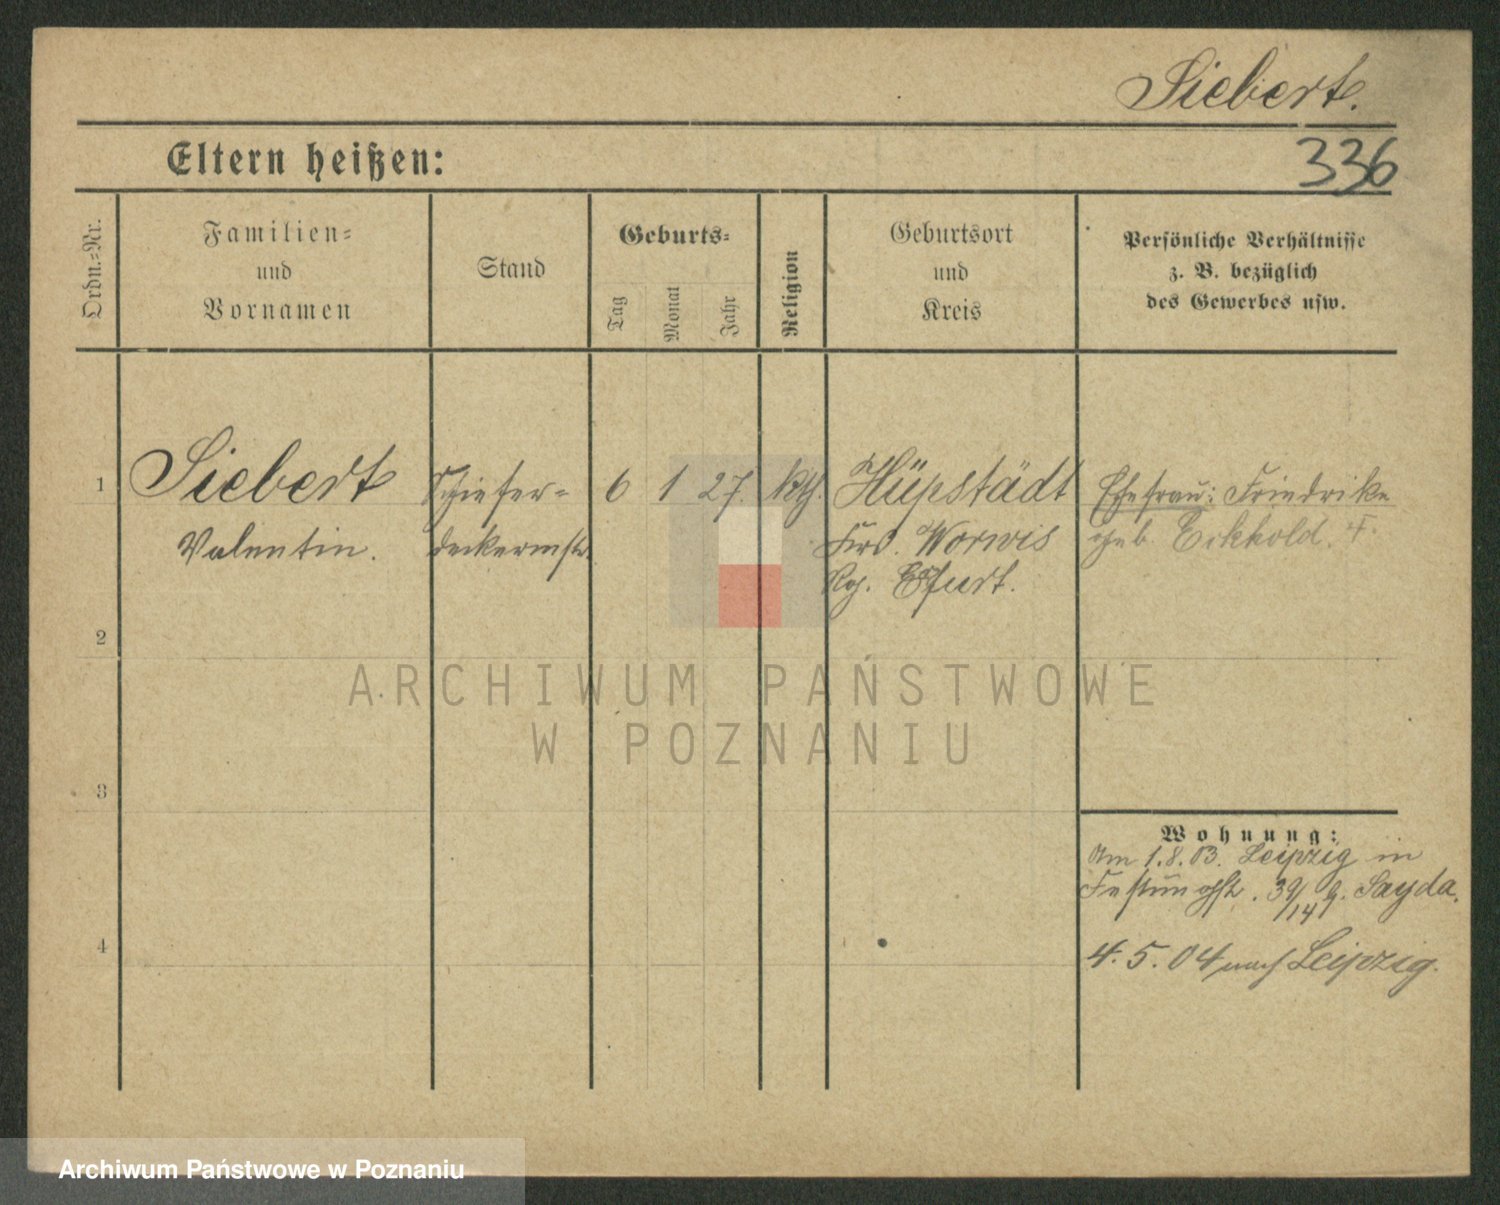 Siebert.
Eltern heißen:
336
Ordn.-Nr.
Familien-
und
Vornamen
Stand
Geburts-
Tag
Monat
Jahr
Religion
Geburtsort
und
Kreis
Persönliche Verhältnisse
z. B. bezüglich
des Gewerbes usw.
1
Siebert
Valentin.
Schiefer-
deckermstr.
6 1 27.
kth.
Hüpstädt
Krs. Worwis
Rg. Erfurt.
Ehefrau: Friedrike
geb. Eckhold. †.
2
3
4
Wohnung:
Am 1.8.03. Leipzig in
39/14 b. Sayda.
4.5.04 nach Leipzig.
ARCHIWUM PAŃSTWOWE
W POZNANIU
Archiwum Państwowe w Poznaniu